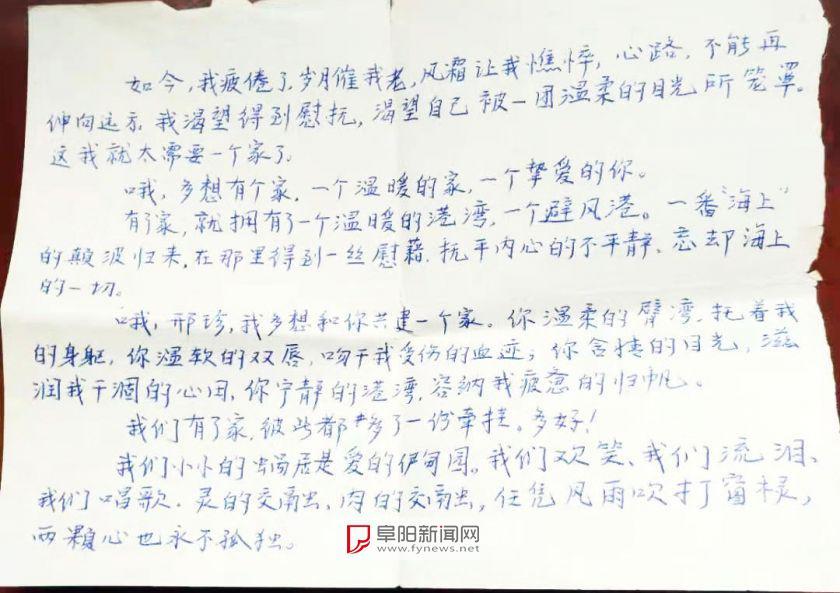 如今，我疲倦了，岁月催我老，风霜让我憔悴，心路，不能再
伸向远方，我渴望得到慰抚，渴望自己被一团温柔的目光所笼罩。
这我就太需要一个家了。
哦，多想有个家，一个温暖的家，一个挚爱的你。
有了家，就拥有了一个温暖的港湾，一个避风港。一番“海上”
的颠波归来，在那里得到一丝慰藉，抚平内心的不平静，忘却海上
的一切。
哦，邢珍，我多想和你共建一个家。你温柔的臂湾，托着我
的身躯，你温软的双唇，吻干我受伤的血迹；你含情的目光，滋
润我干涸的心田，你宁静的港湾，容纳我疲惫的归帆。
我们有了家，彼此都多了一份牵挂。多好！
我们小小的蜗居是爱的伊甸园。我们欢笑、我们流泪、
我们唱歌．灵的交融、肉的交融，任凭风雨吹打窗棂，
两颗心也永不孤独。
阜阳新闻网
www.fynews.net